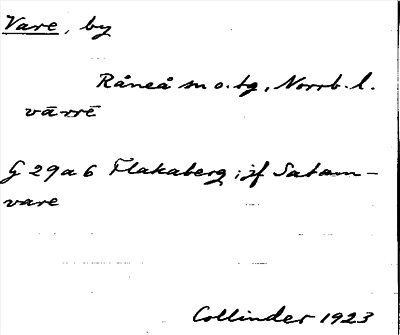 Vare, by
Råneå sn o. tg, Norrb. l.
vārrē
G 29 a b Flakaberg; jf Satam-
vare
Collinder 1923